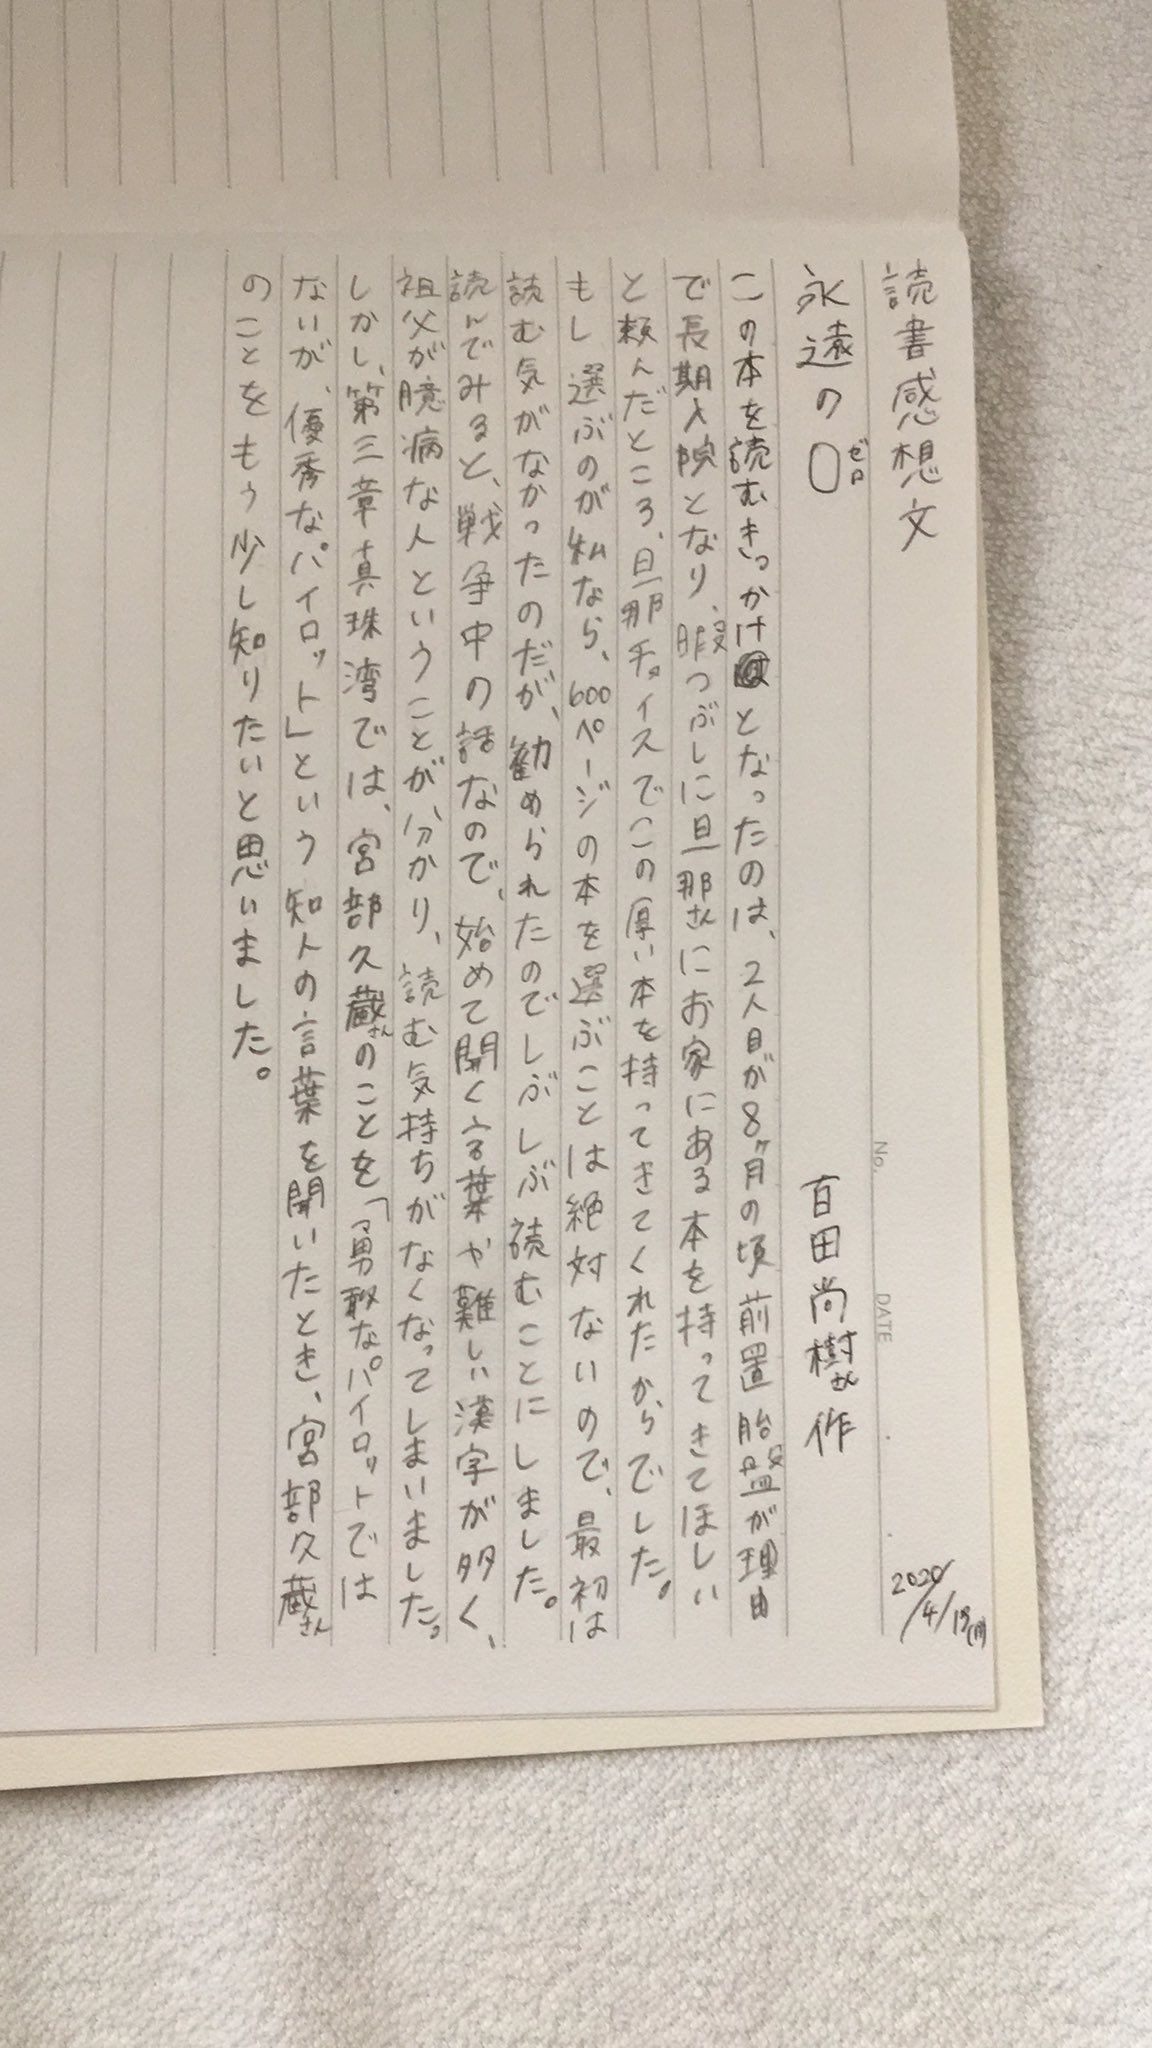 読書感想文
No.
DATE
2020/4/19(日)
永遠の0 百田尚樹さん作
ゼロ
この本を読むきっかけとなったのは、2人目が8ヶ月の頃前置胎盤が理由
で長期入院となり、暇つぶしに旦那さんにお家にある本を持ってきてほしい
と頼んだところ、旦那チョイスでこの厚い本を持ってきてくれたからでした。
もし選ぶのが私なら、600ページの本を選ぶことは絶対ないので、最初は
読む気がなかったのだが、勧められたのでしぶしぶ読むことにしました。
読んでみると、戦争中の話なので、始めて聞く言葉や難しい漢字が多く、
祖父が臆病な人ということが分かり、読む気持ちがなくなってしまいました。
しかし、第三章真珠湾では、宮部久蔵さんのことを「勇敢なパイロットでは
ないが、優秀なパイロット」という知人の言葉を聞いたとき、宮部久蔵さん
のことをもう少し知りたいと思いました。